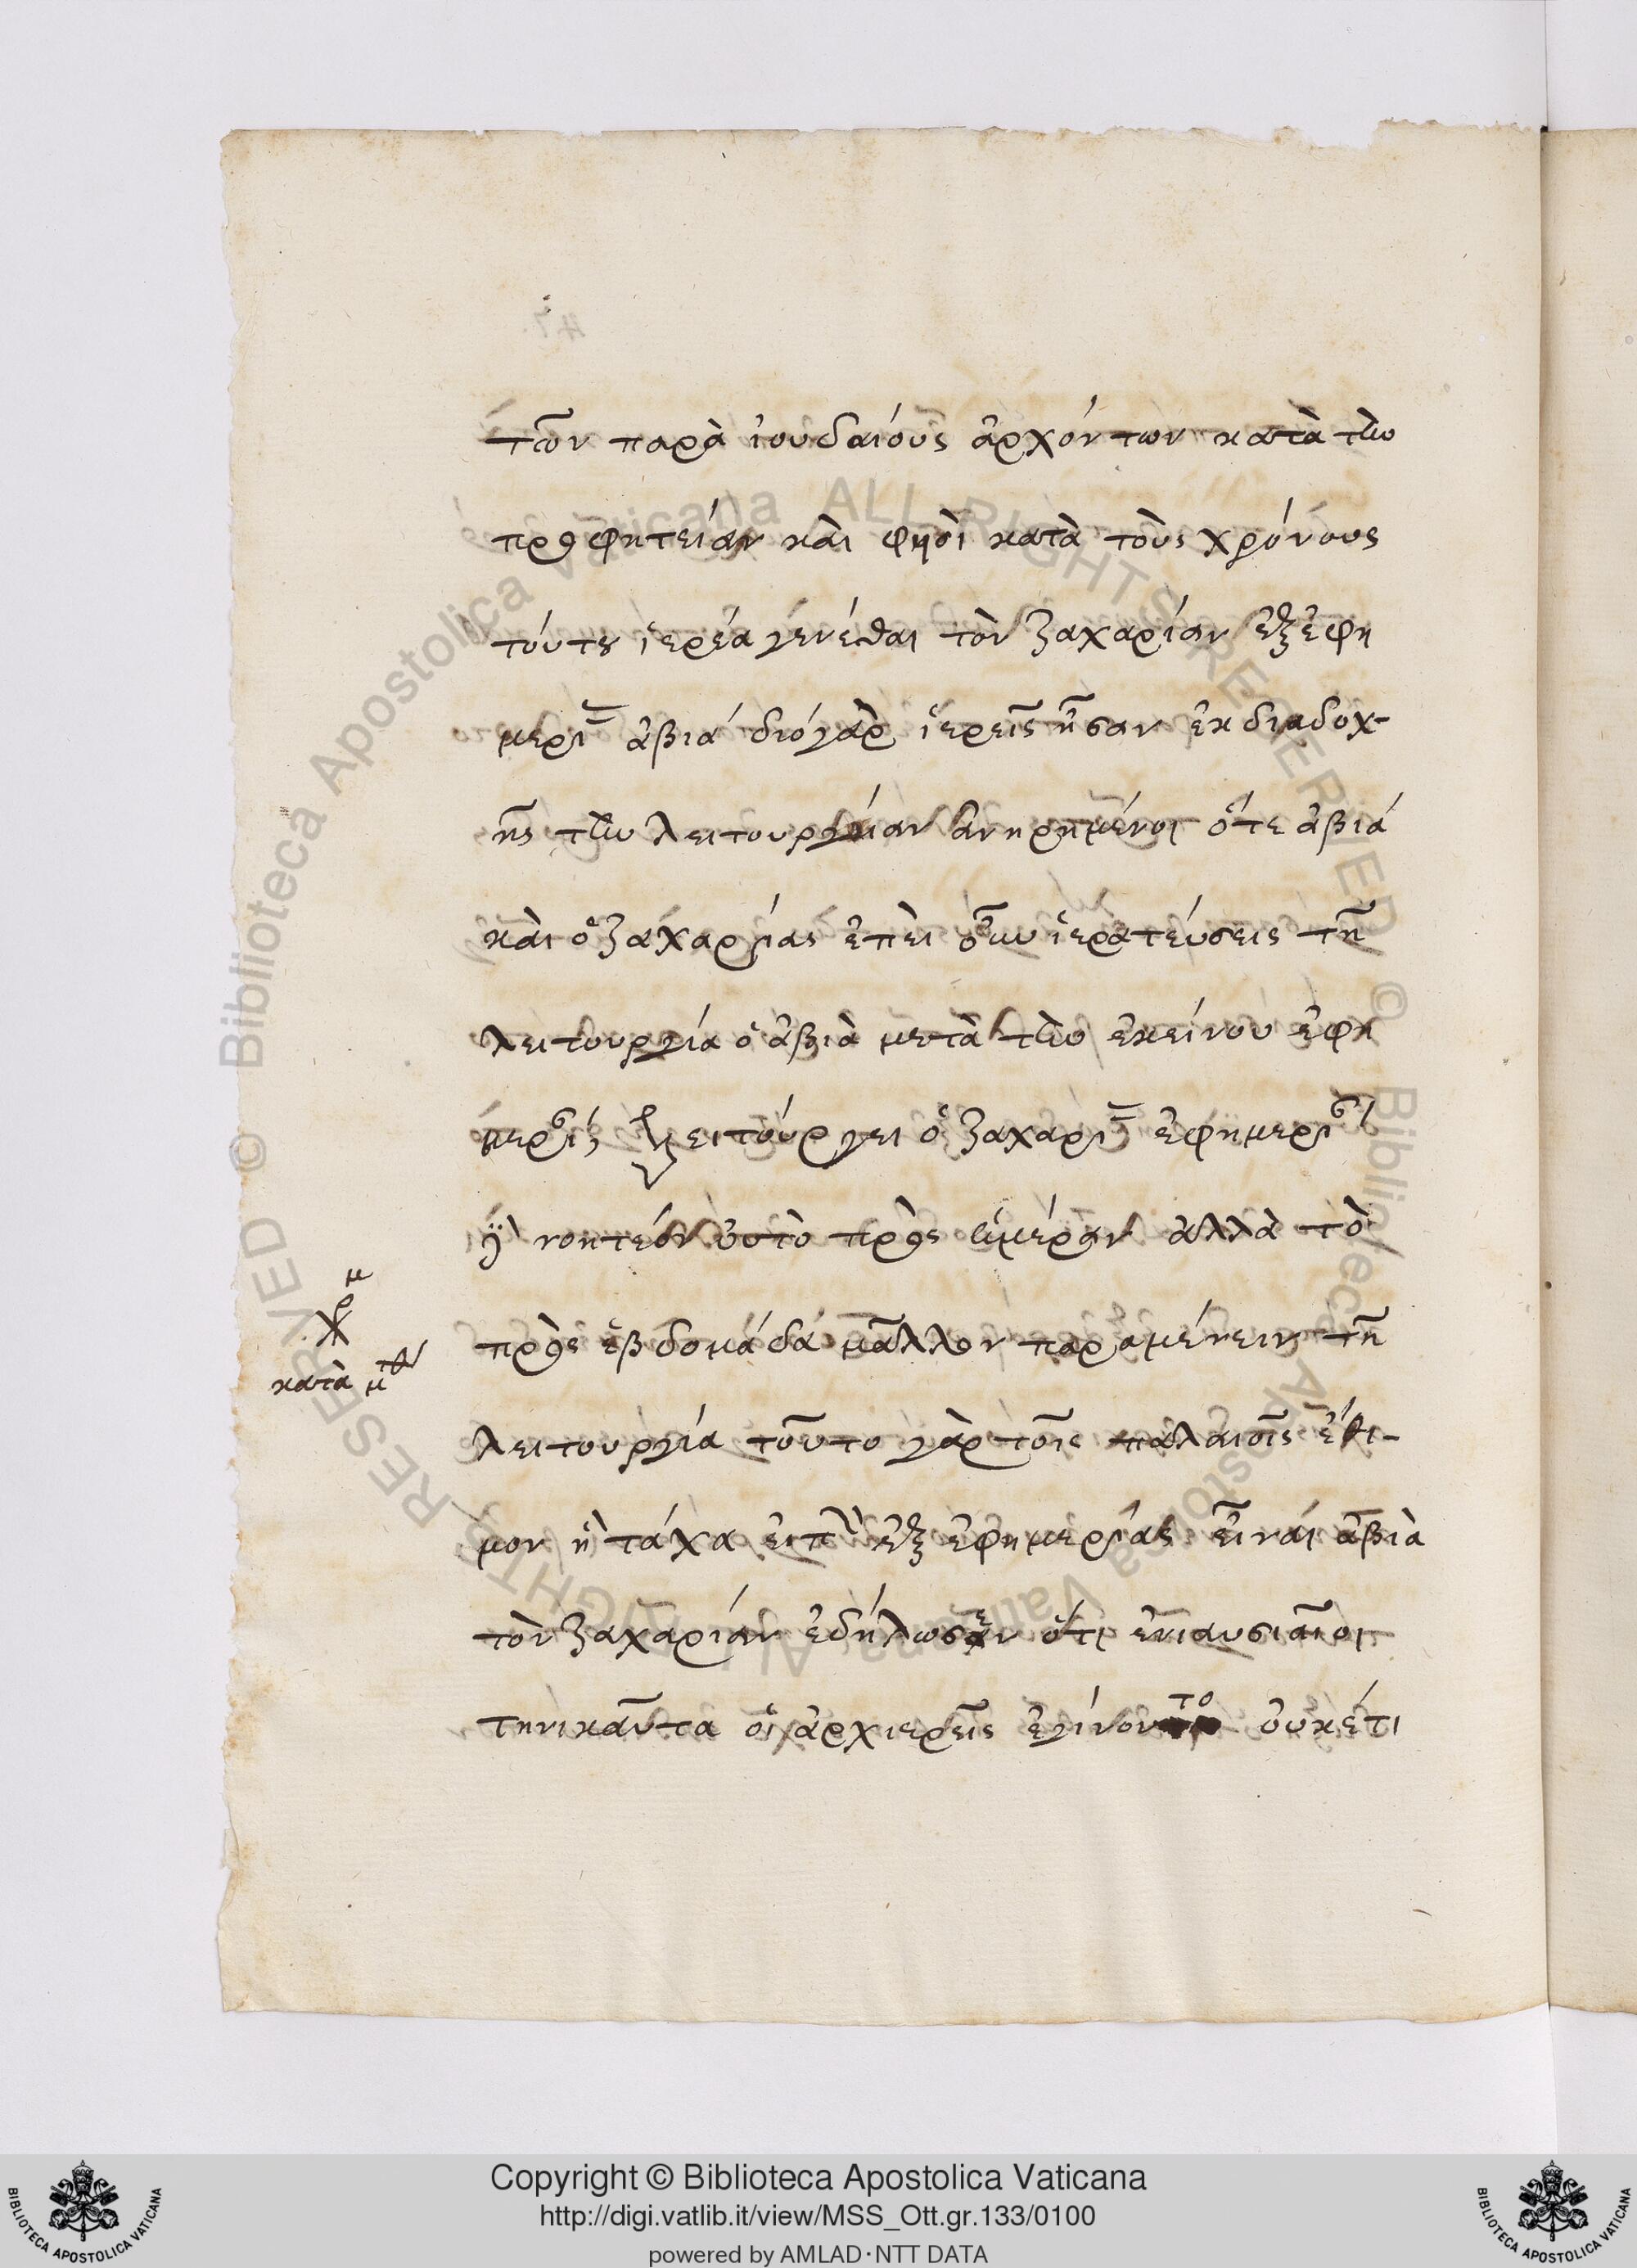 τῶν παρὰ ἰουδαίους ἀρχόντων κατὰ τὴν
προφητείαν καὶ φησὶ κατὰ τοὺς χρόνους
τούτου ἱερέα γενέσθαι τὸν ζαχαρίαν ἐξ ἐφη
μερι ἀβιά διό γὰρ ἱερεῖς ἦσαν ἐκ διαδοχ-
ῆς τὴν λειτουργίαν ἀνηρημένοι ὅτε ἀβιά
καὶ ὁ ζαχαρίας ἐπεὶ οὖν ἱερατεύσεις τῆ
λειτουργία ὁ ἀβιὰ μετὰ τὴν ἐκείνου ἐφη
λειτούργει ὁ ζαχαρι ἐφημερι
νοητέον οὐ τὸ πρὸς ἡμέραν ἀλλὰ τὸ
μ
κατὰ μτθ
πρὸς ἑβδομάδα μᾶλλον παραμένειν τῆ
λειτουργία τοῦτο γὰρ τοῖς παλαιοῖς ἔθι-
μον ἢ τάχα εἰπὼν ἐξ ἐφημερίας εἶναι ἀβιὰ
τὸν ζαχαρίαν ἐδήλωσεν ὅτι ἐνιαυσιαῖοι
τηνικαῦτα οἱ ἀρχιερεῖς ἐγίνοντο οὐκέτι
Copyright © Biblioteca Apostolica Vaticana
http://digi.vatlib.it/view/MSS_Ott.gr.133/0100
powered by AMLAD·NTT DATA
BIBLIOTECA APOSTOLICA VATICANA
BIBLIOTECA APOSTOLICA VATICANA